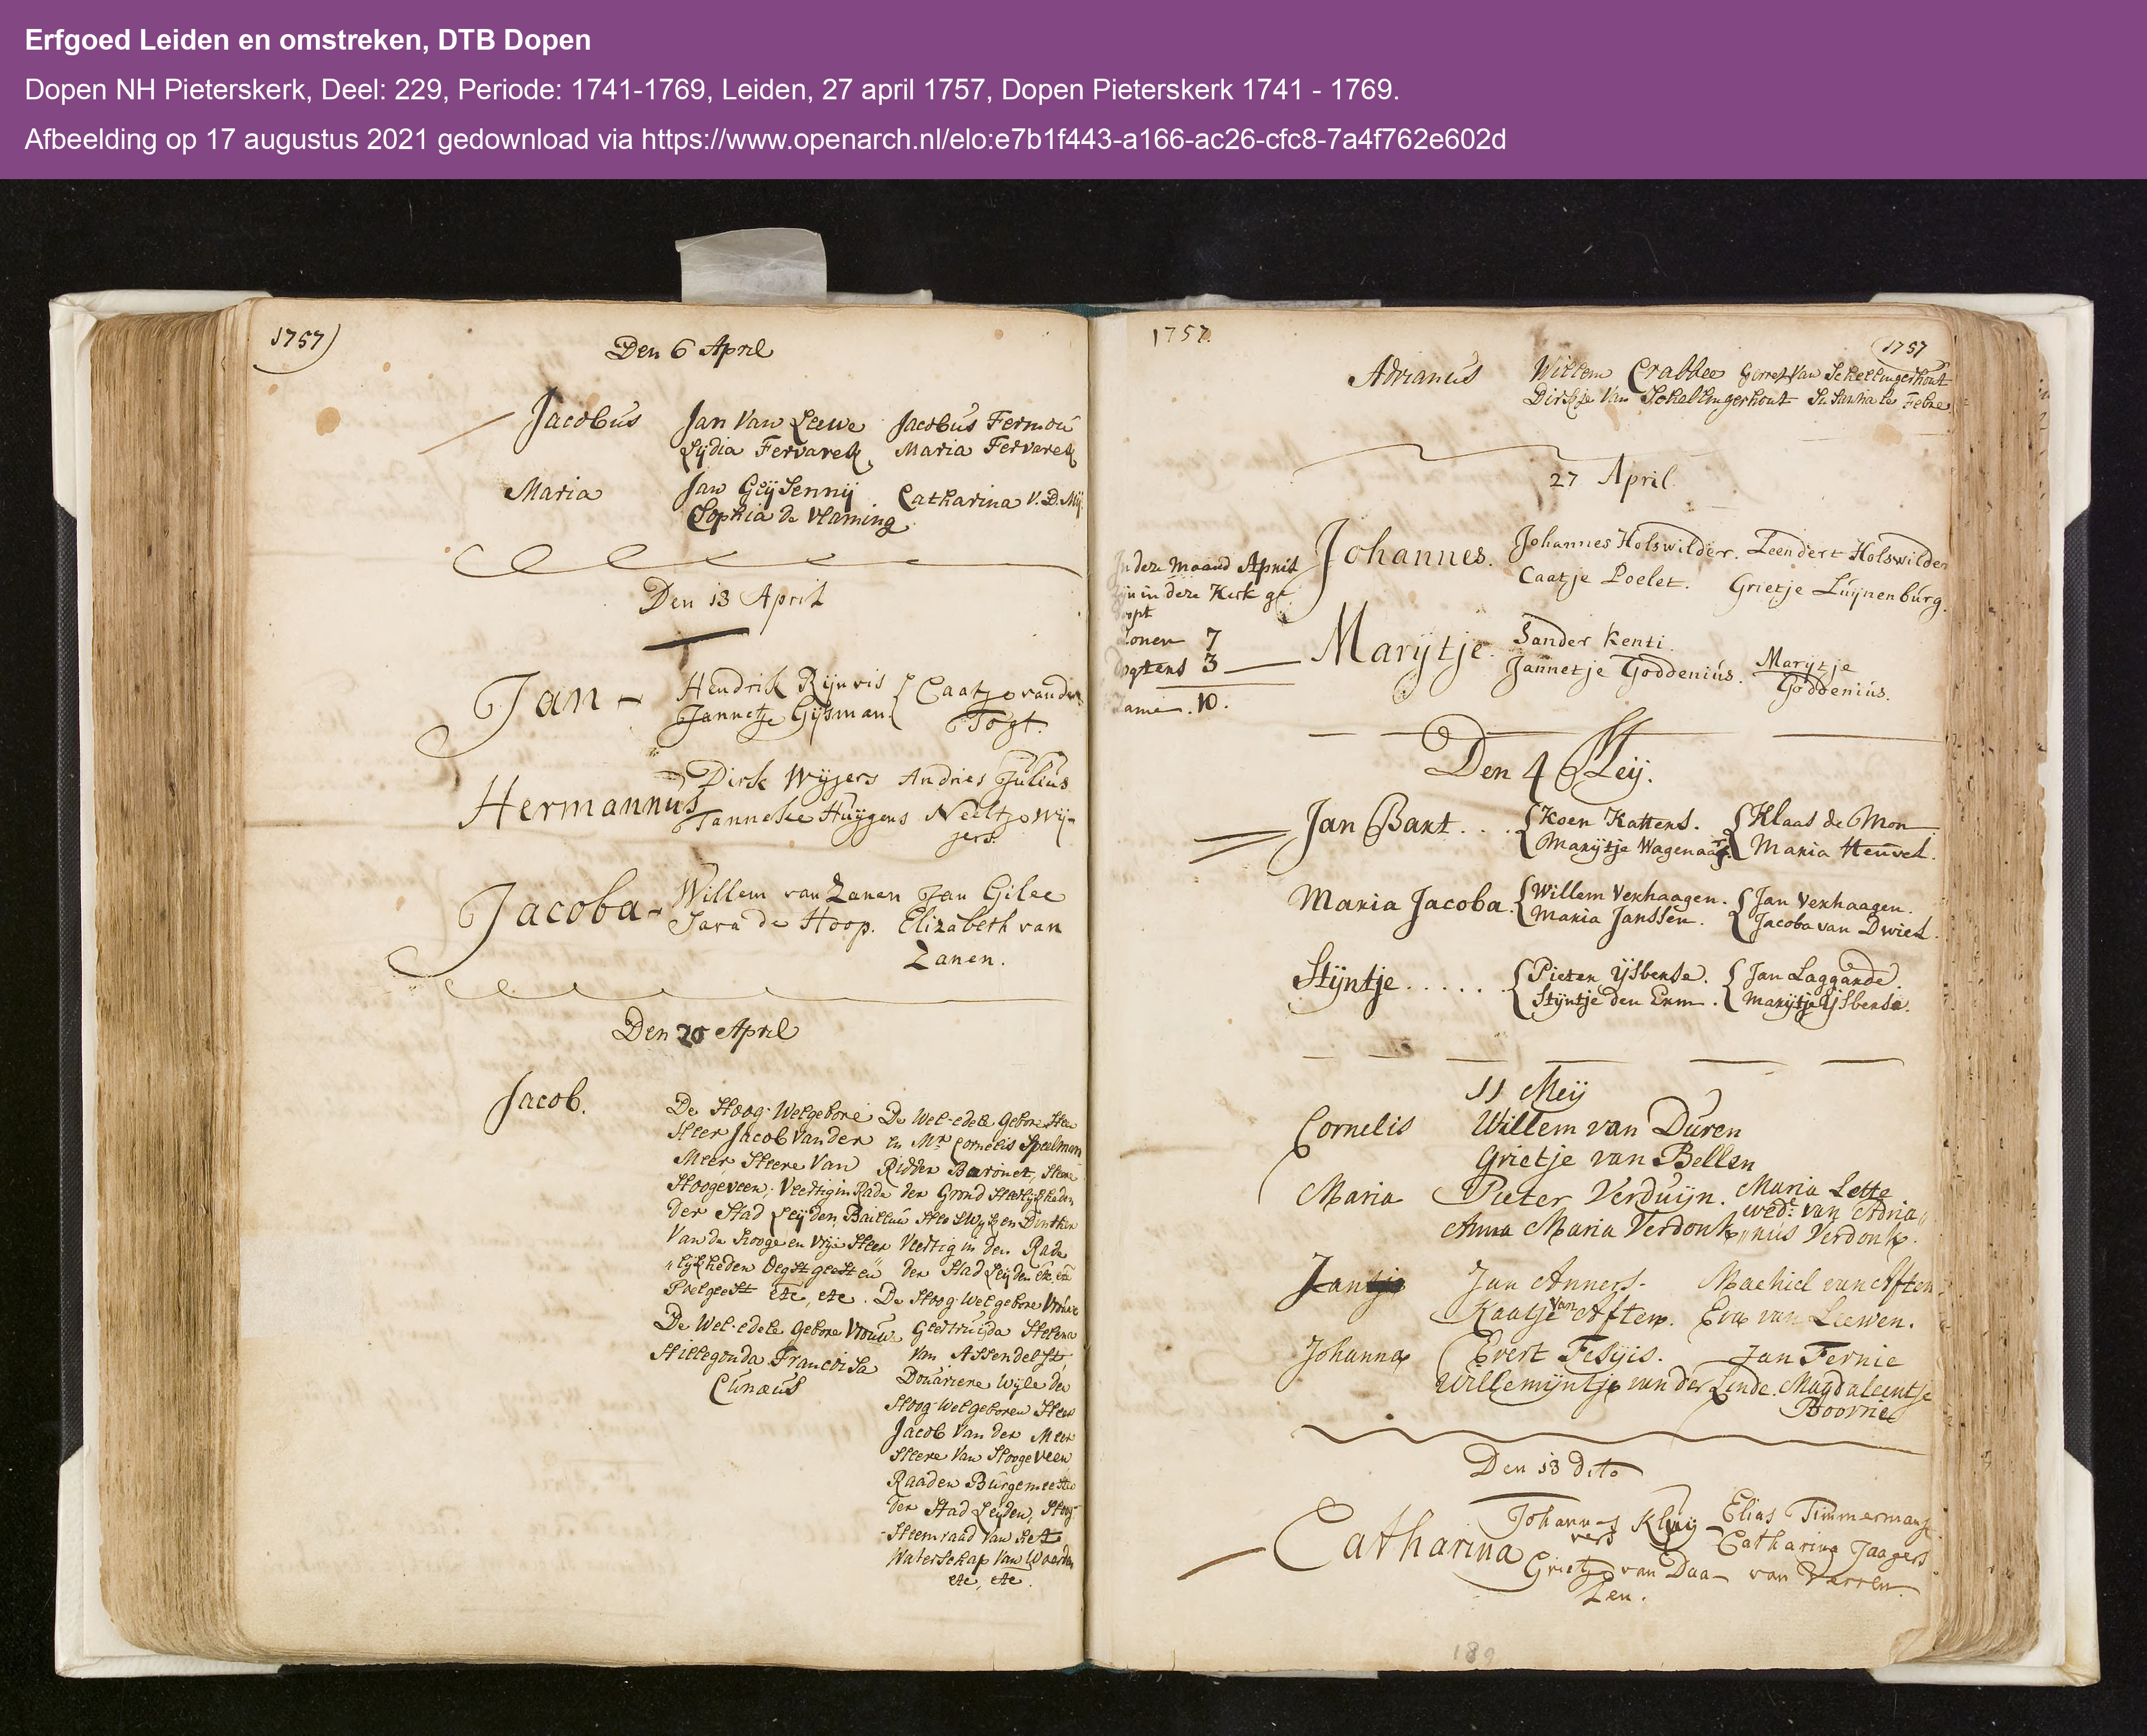 Erfgoed Leiden en omstreken, DTB Dopen
Dopen NH Pieterskerk, Deel: 229, Periode: 1741-1769, Leiden, 27 april 1757, Dopen Pieterskerk 1741 - 1769.
Afbeelding op 17 augustus 2021 gedownload via https://www.openarch.nl/elo:e7b1f443-a166-ac26-cfc8-7a4f762e602d
1757
Den 6 April
Jacobus Jan Van Leewe Jacobus Fermou
Lydia Fervarek Maria Fervarek
Maria Jan Geysennij Catharina V.D. Mij
Sophia de Vlaming
Den 13 April
Jan Hendrik Rijnvis Caatje vander
Jannetje Gijsman Togt.
Hermannus Dirk Wijjers Andries Julius
Tanneke Huijgens Neeltje Wij-
jers.
Jacoba Willem van Zanen Jan Gilee
Sara de Hoop. Elizabeth van
Zanen.
Den 20 April
Jacob.
De Hoog-Welgebore
Heer Jacob van der
Meer Heere Van
Hoogeveen, Veertig in Rade
der Stad Leijden, Bailluw
Van de Hooge en Vrije Heer
lijkheden Oegstgeest en
Poelgeest etc, etc.
De Wel-edele Gebore Vrouw
Hillegonda Francoisa
Cunæus
De Wel-edele Gebore Heer
en Mr. Cornelis Speelman
Ridder Baronet, Heere
der Grond Heerlijkheden
Heeswijk en Dinther
Veertig in den Rade
der Stad Leijden etc. etc
De Hoog-Welgebore Vrouwe
Geertruijda Helena
Van Assendelft,
Douariere Wijle den
Hoog-Welgeboren Heer
Jacob Van der Meer
Heere Van Hoogeveen
Raad en Burgemeester
der Stad Leijden, Hoog-
Heemraad Van het
Waterschap Van Woerden
etc, etc.
1757
1757
Adrianus Willem Crabbee Gerret Van Schellingerhout
Dirkje Van Schellingerhout Susanna le Febre
27 April.
In deze Maand April
zijn in deze Kerk ge
doopt
Zonen 7
Dogters 3
Zame. 10.
Johannes. Johannes Holswilder. Leendert Holswilder
Caatje Poelet. Grietje Luijnenburg.
Marijtje. Sander Kenti.
Jannetje Goddenius. Marijtje
Goddenius.
Den 4 Meij.
Jan Bart... Koen Kattens. Klaas de Mon
Marijtje Wagenaar. Maria Heuvel.
Maria Jacoba. Willem Verhaagen. Jan Verhaagen.
Maria Janssen. Jacoba van Dwiel.
Stijntje...... Pieter IJsbense. Jan Laggarde.
Stijntje den Erm. Marijtje IJsbense.
11 Meij
Cornelis Willem van Duren
Grietje van Bellen
Maria Pieter Verduijn. Maria Lette
wede. van Adria
Anna Maria Verdonk nus Verdonk.
Jan Jan Anners. Machiel van Aften
Kaatje van Aften. Eva van Leewen.
Johanna Evert Fesijis. Jan Fernie
Willemijntje van der Linde. Magdaleentje
Boornie
Den 13 dito
Catharina Johannes Kluij Elias Timmermans
vers Catharina Jaagers
Grietje van Daa- van Varren.
len.
189